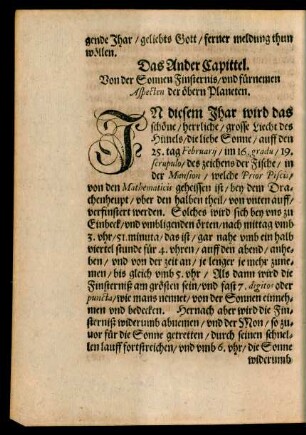 gende Jhar / geliebts Gott / ferner meldung thun
wöllen.
Das Ander Capittel.
Von der Sonnen Finsternis / und fürnemen
Aspecten der öbern Planeten.
IN diesem Jhar wird das
schöne / herrliche / grosse Liecht des
Himels / die liebe Sonne / auff den
25. tag February / im 16. gradu / 19.
scrupulo / des zeichens der Fische / in
der Mansion / welche Prior Piscis /
von den Mathematicis geheissen ist / bey dem Dra-
chenheupt / vber den halben theil / von vnten auff /
verfinstert werden. Solches wird sich bey vns zu
Einbeck / vnd vmbligenden örten / nach mittag vmb
3. vhr / 51. minuta / das ist / gar nahe vmb ein halb
viertel stunde für 4. vhren / auff den abend / anhe-
ben / vnd von der zeit an / je lenger je mehr zune-
men / bis gleich vmb 5. vhr / Als dann wird die
Finsternis am grösten sein / vnd fast 7. digitos oder
puncta / wie mans nennet / von der Sonnen einneh-
men vnd bedecken. Hernach aber wird die Fin-
sterniß widerumb abnemen / vnd der Mon / so zu-
uor für die Sonne getretten / durch seinen schnel-
len lauff fortstreichen / vnd vmb 6. vhr / die Sonne
widerumb